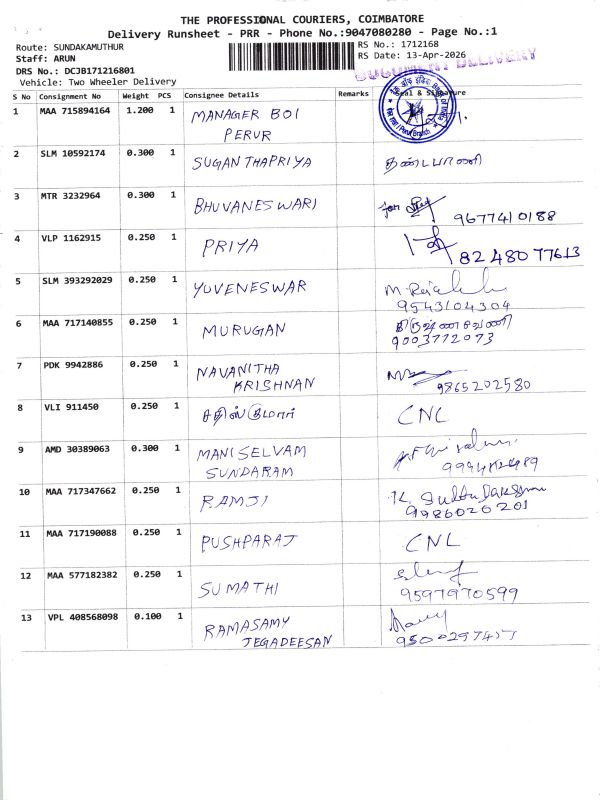 THE PROFESSIONAL COURIERS, COIMBATORE
Delivery Runsheet - PRR - Phone No.:9047080280 - Page No.:1
Route: SUNDAKAMUTHUR RS No.: 1712168
Staff: ARUN RS Date: 13-Apr-2026
DRS No.: DCJB171216801 DOCUMENT DELIVERY
Vehicle: Two Wheeler Delivery
S No Consignment No Weight PCS Consignee Details Remarks Seal & Signature
1 MAA 715894164 1.200 1 MANAGER BOI
PERUR
2 SLM 10592174 0.300 1 SUGANTHAPRIYA தண்டபாணி
3 MTR 3232964 0.300 1 BHUVANESWARI
9677410188
4 VLP 1162915 0.250 1 PRIYA
8248077613
5 SLM 393292029 0.250 1 YUVENESWAR
9543104304
6 MAA 717140855 0.250 1 MURUGAN கிருஷ்ணவேணி
9003772073
7 PDK 9942886 0.250 1 NAVANITHA
KRISHNAN 9865202580
8 VLI 911450 0.250 1 சதிஸ்குமார் CNL
9 AMD 30389063 0.300 1 MANISELVAM
SUNDARAM
10 MAA 717347662 0.250 1 RAMJI
9986020201
11 MAA 717190088 0.250 1 PUSHPARAJ CNL
12 MAA 577182382 0.250 1 SUMATHI
9597970599
13 VPL 408568098 0.100 1 RAMASAMY
JEGADEESAN